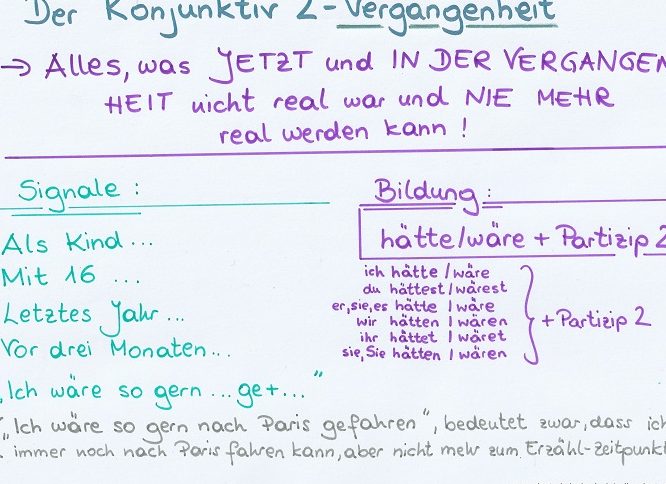 Der Konjunktiv 2 - Vergangenheit
→ Alles, was JETZT und IN DER VERGANGEN
HEIT nicht real war und NIE MEHR
real werden kann !
Signale :
Als Kind ...
Mit 16 ...
Letztes Jahr ...
Vor drei Monaten ...
„Ich wäre so gern ... ge+..."
Bildung :
hätte/wäre + Partizip 2
ich hätte / wäre
du hättest / wärest
er, sie, es hätte / wäre
wir hätten / wären
ihr hättet / wäret
sie, Sie hätten / wären
+ Partizip 2
„Ich wäre so gern nach Paris gefahren", bedeutet zwar, dass ich
immer noch nach Paris fahren kann, aber nicht mehr zum Erzähl-Zeitpunkt